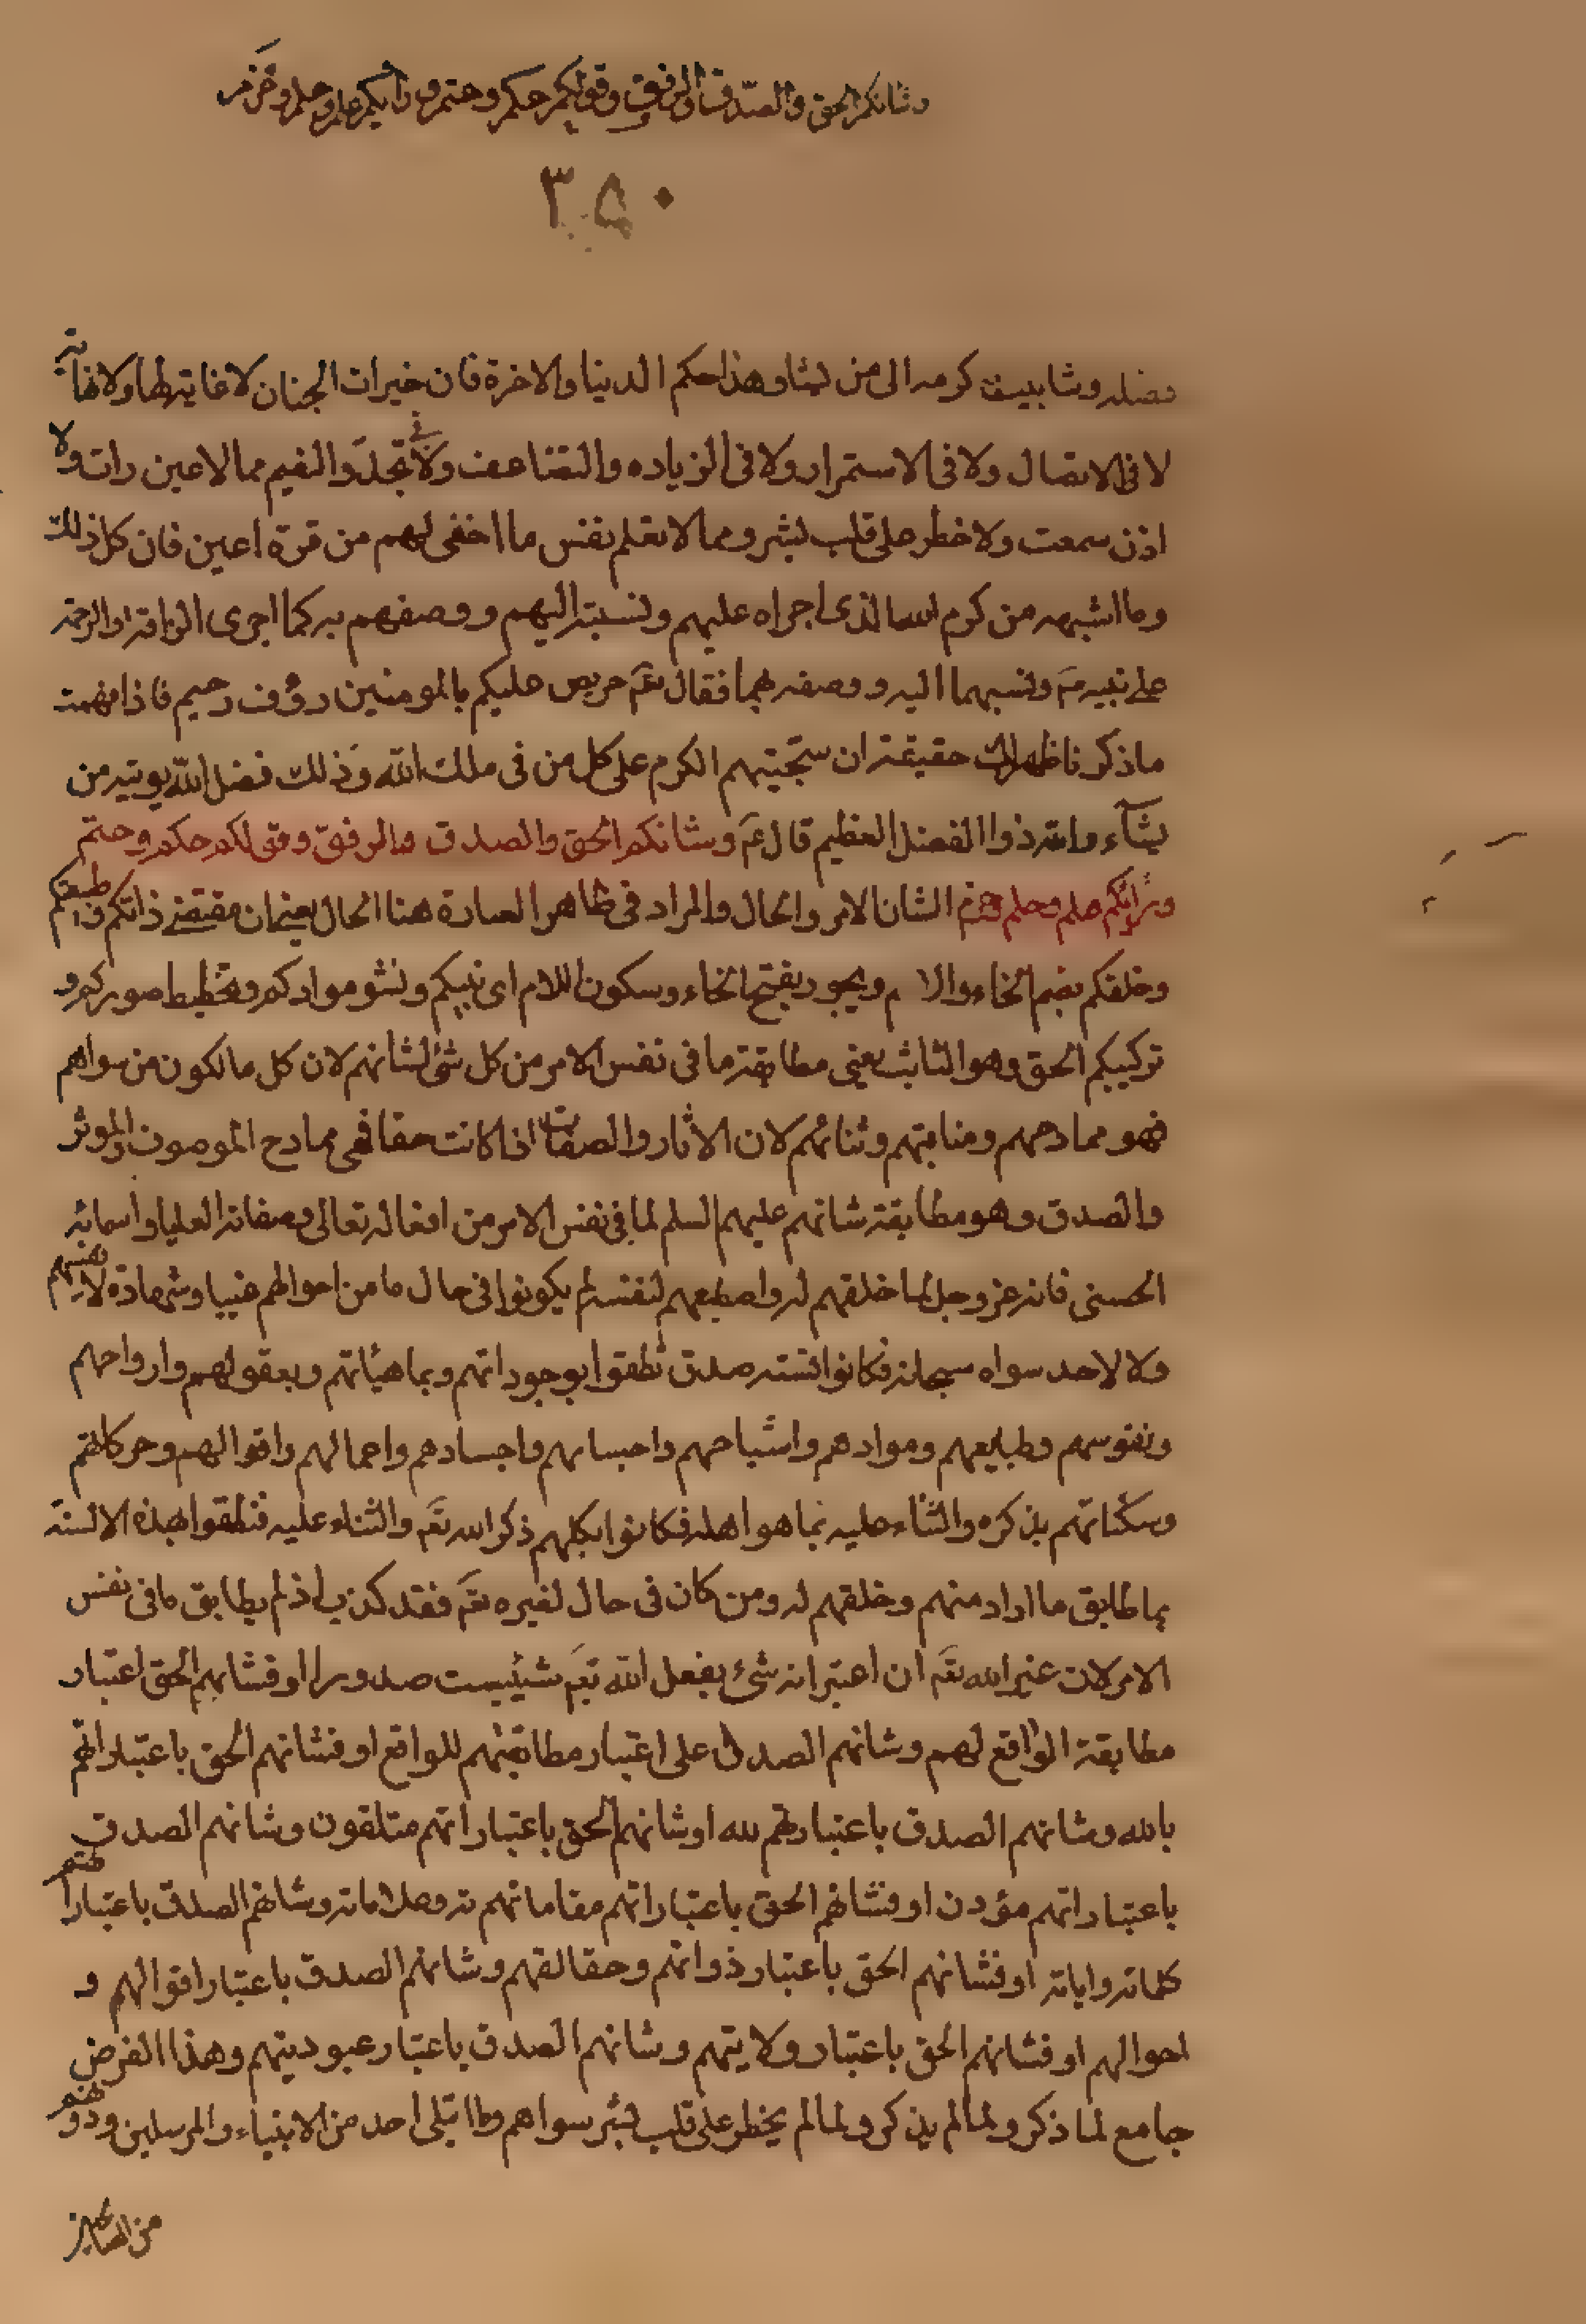 وشانكم الحق والصدق والرفق وقولكم حكم وحتم ورأيكم علم وحلم وحزم
٣٥٠
فضله وشابيب كرمه الى من يشاء وهذا حكم الدنيا والاخرة فان خيرات الجنان لا غاية لها ولا نهاية
لا فى الاتصال ولا فى الاستمرار ولا فى الزياده والتضاعف ولا فى تجدد النعيم مما لا عين رات ولا
اذن سمعت ولا خطر على قلب بشر ومما لا تعلم نفس ما اخفى لهم من قرة اعين فان كل ذلك
وما اشبهه من كرم الله الذى اجراه عليهم ونسبته اليهم ووصفهم به كما اجرى الرافة والرحمة
على نبيه ص ونسبهما اليه ووصفه بهما فقال تع حريص عليكم بالمومنين رؤف رحيم فاذا فهمت
ما ذكرنا ظهر لك حقيقة ان سجيتهم الكرم على كل من فى ملك الله وذلك فضل الله يوتيه من
يشآء والله ذوا الفضل العظيم قال ع وشانكم الحق والصدق والرفق وقولكم حكم وحتم
ورايكم علم وحلم وحزم الشان الامر والحال والمراد فى ظاهر العبارة هنا الحال يعنى ان مقتضى ذاتكم وطبيعتكم
وخلقكم بضم الخاء واللام ويجوز بفتح الخاء وسكون اللام اى نبيكم ونشو موادكم وتخطيط صوركم و
تركيبكم الحق وهو الثابت يعنى مطابقة ما فى نفس الامر من كل شئ لشانهم لان كل ما لكون من سواهم
فهو ممادحهم ومناقبهم وثنائهم لان الاثار والصفات اذا كانت حقا فهى ممادح الموصوف والموثر
والصدق وهو مطابقة شانهم عليهم السلم لما فى نفس الامر من افعاله تعالى وصفاته العليا واسمائه
الحسنى فانه عز وجل لما خلقهم له واصطنعهم لنفسه لم يكونوا فى حال ما من احوالهم غيبا وشهادة لانفسهم
ولا لاحد سواه سبحانه فكانوا السنة صدق نطقوا بوجوداتهم وبماهياتهم وبعقولهم وارواحهم
ونفوسهم وطبايعهم وموادهم واشباحهم واجسامهم واجسادهم واعمالهم واقوالهم وحركاتهم
وسكناتهم بذكره والثناء عليه بما هو اهله فكانوا بكلهم ذكر الله تع والثناء عليه فنطقوا بهذه الالسنة
بما طابق ما اراد منهم وخلقهم له ومن كان فى حال لغيره تع فقد كذب اذ لم يطابق ما فى نفس
الامر لان غير الله تع ان اعتبر انه شئ بفعل الله تع شيئيت صدورا او فشانهم الحق اعتبار
مطابقة الواقع لهم وشانهم الصدق على اعتبار مطابقتهم للواقع او فشانهم الحق باعتبار انهم
بالله وشانهم الصدق باعتبار انهم لله او شانهم الحق باعتبار انهم متلقون وشانهم الصدق
باعتبار انهم مؤدن او فشانهم الحق باعتبار انهم مقاماته وعلاماته وشانهم الصدق باعتبار انهم
كلماته واياته او فشانهم الحق باعتبار ذواتهم وحقائقهم وشانهم الصدق باعتبار اقوالهم و
احوالهم او فشانهم الحق باعتبار ولايتهم وشانهم الصدق باعتبار عبوديتهم وهذا الفرض
جامع لما ذكر ولما لم يذكر ولما لم يخطر على قلب بشر سواهم وما ابتلى احد من الانبياء والمرسلين ودونهم
من الصالحين